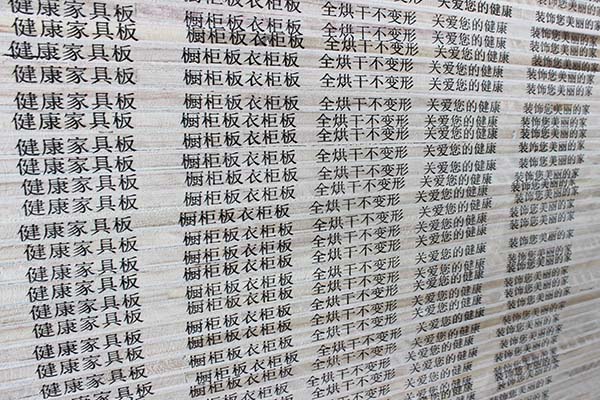 健康家具板 橱柜板衣柜板 全烘干不变形 关爱您的健康 装饰您美丽的家
健康家具板 橱柜板衣柜板 全烘干不变形 关爱您的健康 装饰您美丽的家
健康家具板 橱柜板衣柜板 全烘干不变形 关爱您的健康 装饰您美丽的家
健康家具板 橱柜板衣柜板 全烘干不变形 关爱您的健康 装饰您美丽的家
健康家具板 橱柜板衣柜板 全烘干不变形 关爱您的健康 装饰您美丽的家
健康家具板 橱柜板衣柜板 全烘干不变形 关爱您的健康 装饰您美丽的家
健康家具板 橱柜板衣柜板 全烘干不变形 关爱您的健康 装饰您美丽的家
健康家具板 橱柜板衣柜板 全烘干不变形 关爱您的健康 装饰您美丽的家
健康家具板 橱柜板衣柜板 全烘干不变形 关爱您的健康 装饰您美丽的家
健康家具板 橱柜板衣柜板 全烘干不变形 关爱您的健康 装饰您美丽的家
健康家具板 橱柜板衣柜板 全烘干不变形 关爱您的健康 装饰您美丽的家
健康家具板 橱柜板衣柜板 全烘干不变形 关爱您的健康 装饰您美丽的家
健康家具板 橱柜板衣柜板 全烘干不变形 关爱您的健康 装饰您美丽的家
健康家具板 橱柜板衣柜板 全烘干不变形 关爱您的健康 装饰您美丽的家
健康家具板 橱柜板衣柜板 全烘干不变形 关爱您的健康 装饰您美丽的家
健康家具板 橱柜板衣柜板 全烘干不变形 关爱您的健康 装饰您美丽的家
健康家具板 橱柜板衣柜板 全烘干不变形 关爱您的健康 装饰您美丽的家
健康家具板 橱柜板衣柜板 全烘干不变形 关爱您的健康 装饰您美丽的家
健康家具板 橱柜板衣柜板 全烘干不变形 关爱您的健康 装饰您美丽的家